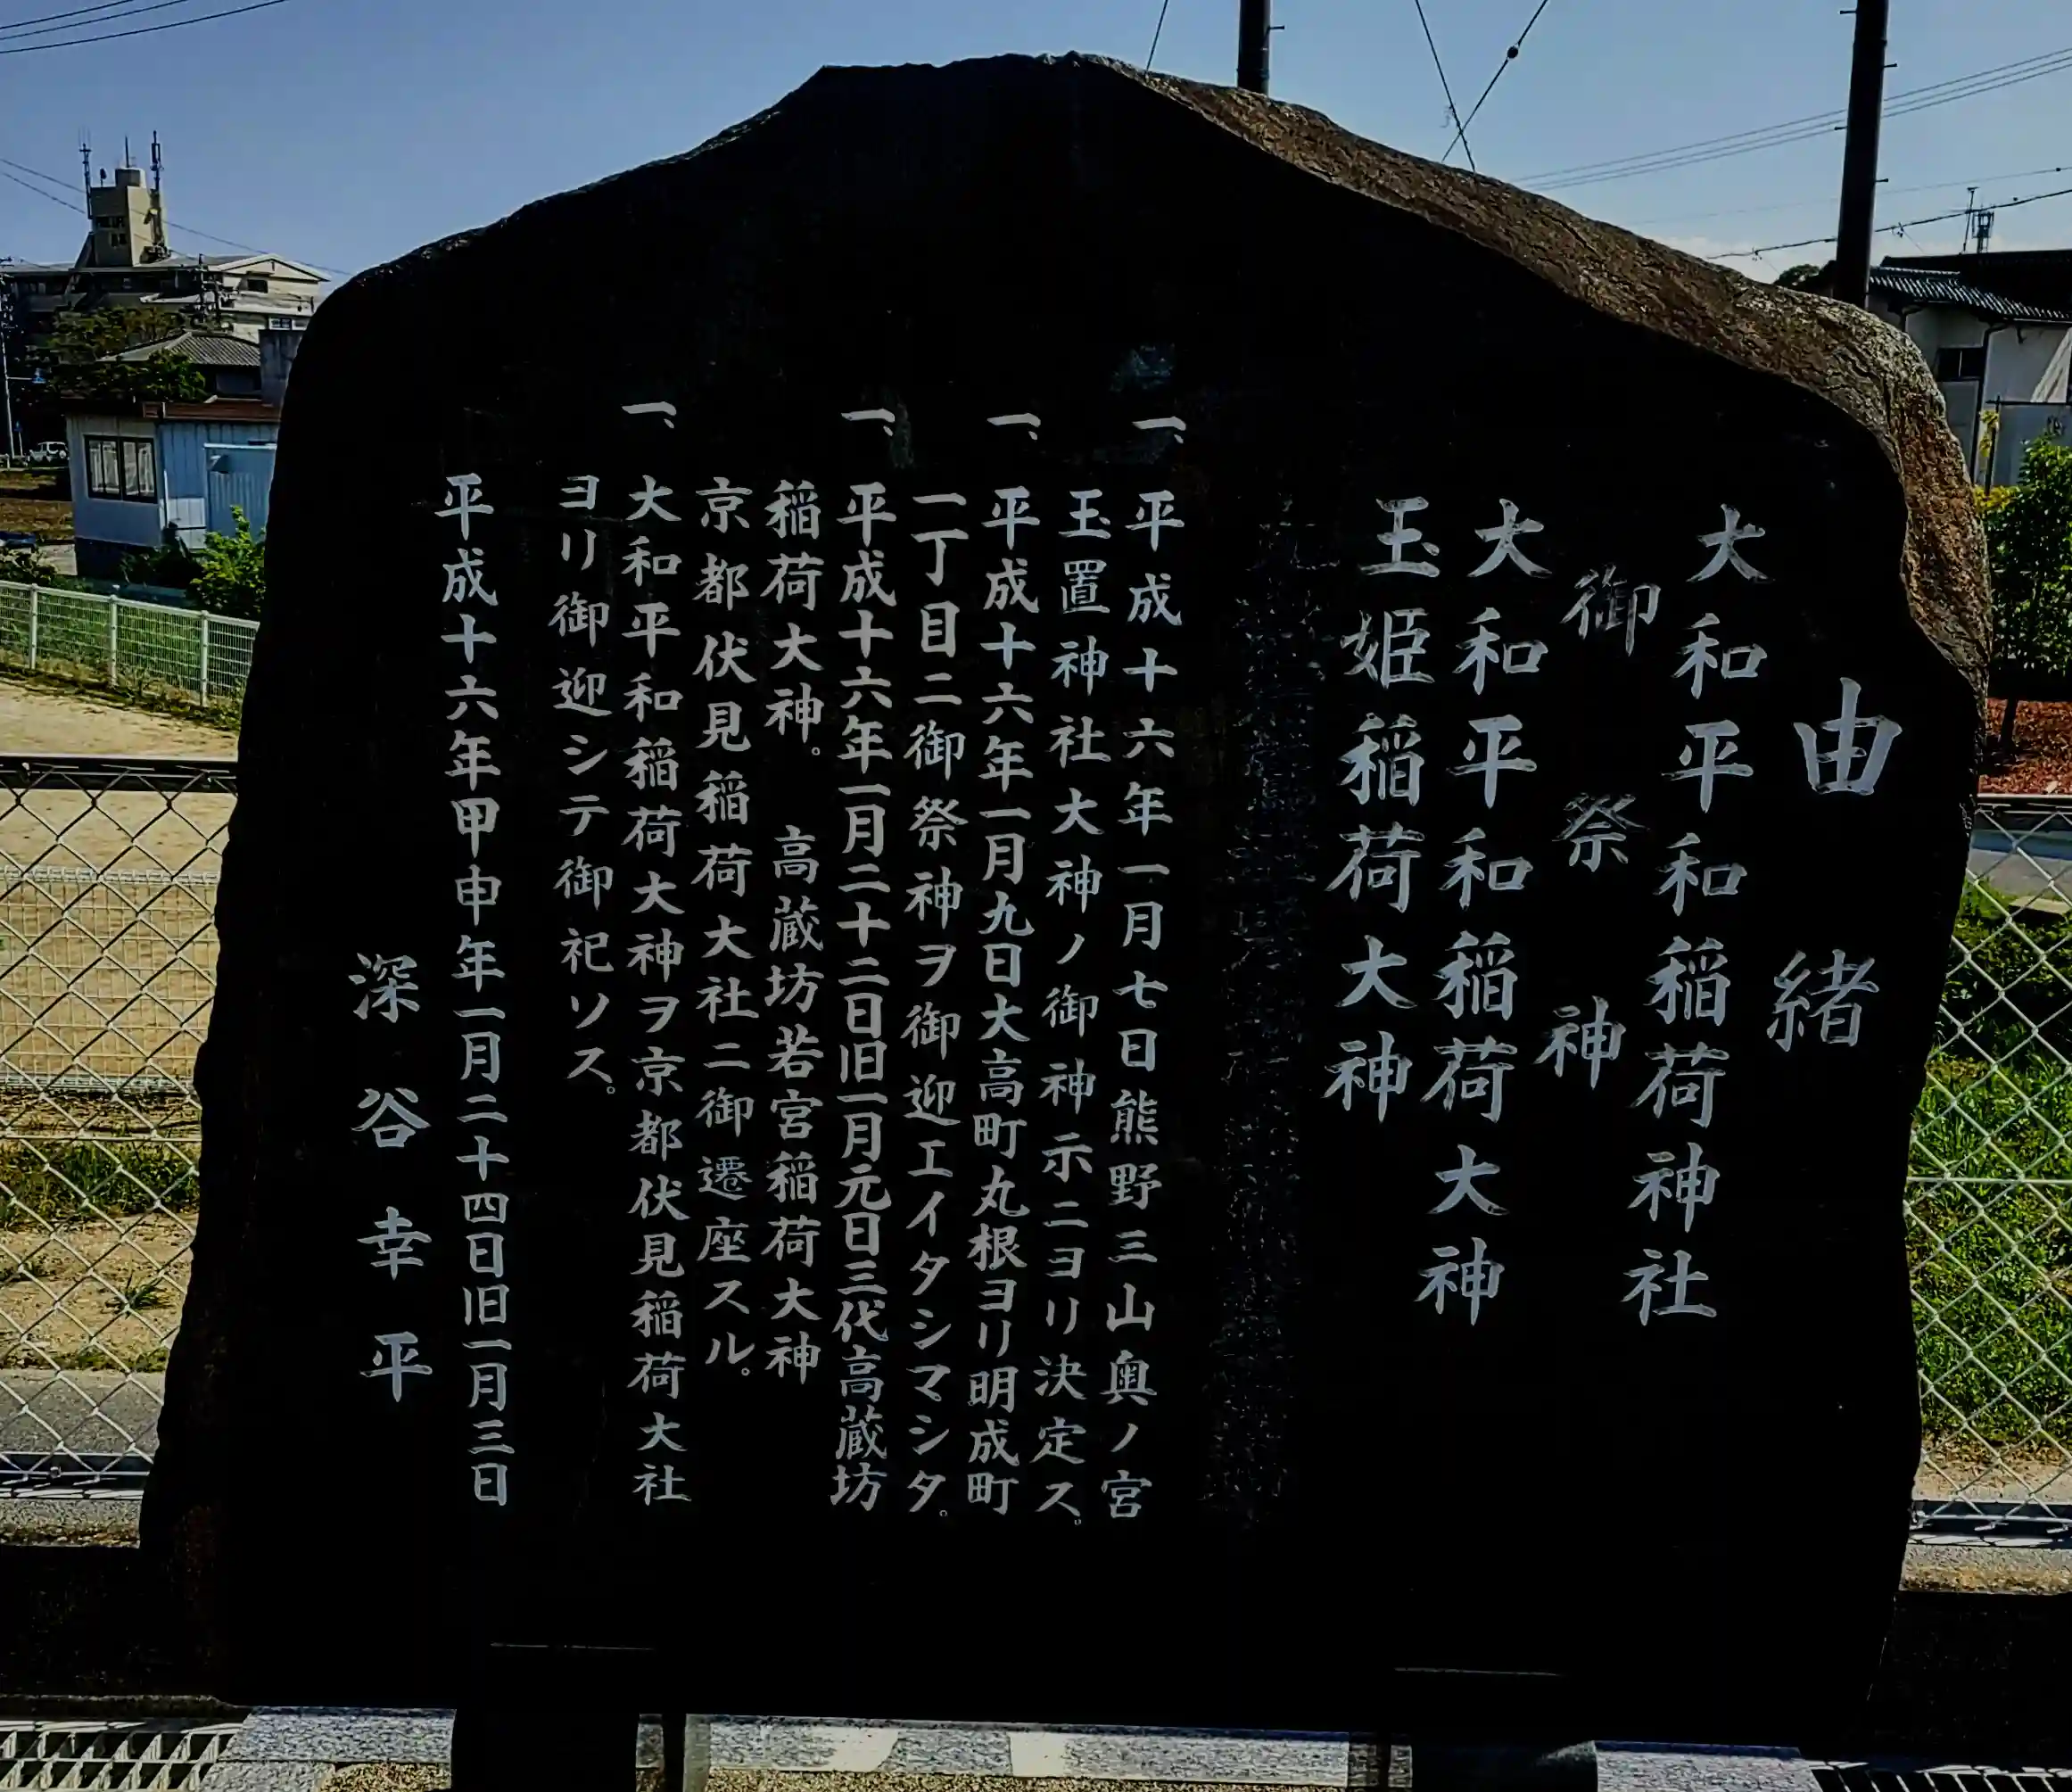 由緒
大和平和稲荷神社
御祭神
大和平和稲荷大神
玉姫稲荷大神
一、平成十六年一月七日熊野三山奥ノ宮
玉置神社大神ノ御神示ニヨリ決定ス。
一、平成十六年一月九日大高町丸根ヨリ明成町
一丁目ニ御祭神ヲ御迎エイタシマシタ。
一、平成十六年一月二十二日旧一月元日三代高蔵坊
稲荷大神。 高蔵坊若宮稲荷大神
京都伏見稲荷大社ニ御遷座スル。
一、大和平和稲荷大神ヲ京都伏見稲荷大社
ヨリ御迎シテ御祀ソス。
平成十六年甲申年一月二十四日旧一月三日
深谷幸平